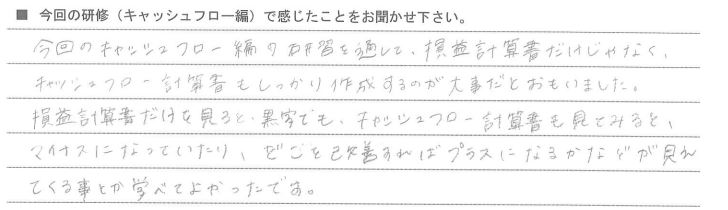 ■ 今回の研修（キャッシュフロー編）で感じたことをお聞かせ下さい。
今回のキャッシュフロー編の研習を通して、損益計算書だけじゃなく、
キャッシュフロー計算書もしっかり作成するのが大事だとおもいました。
損益計算書だけを見ると、黒字でも、キャッシュフロー計算書も見てみると、
マイナスになっていたり、どこを改善すればプラスになるかなどが見れ
てくる事とか学べてよかったです。